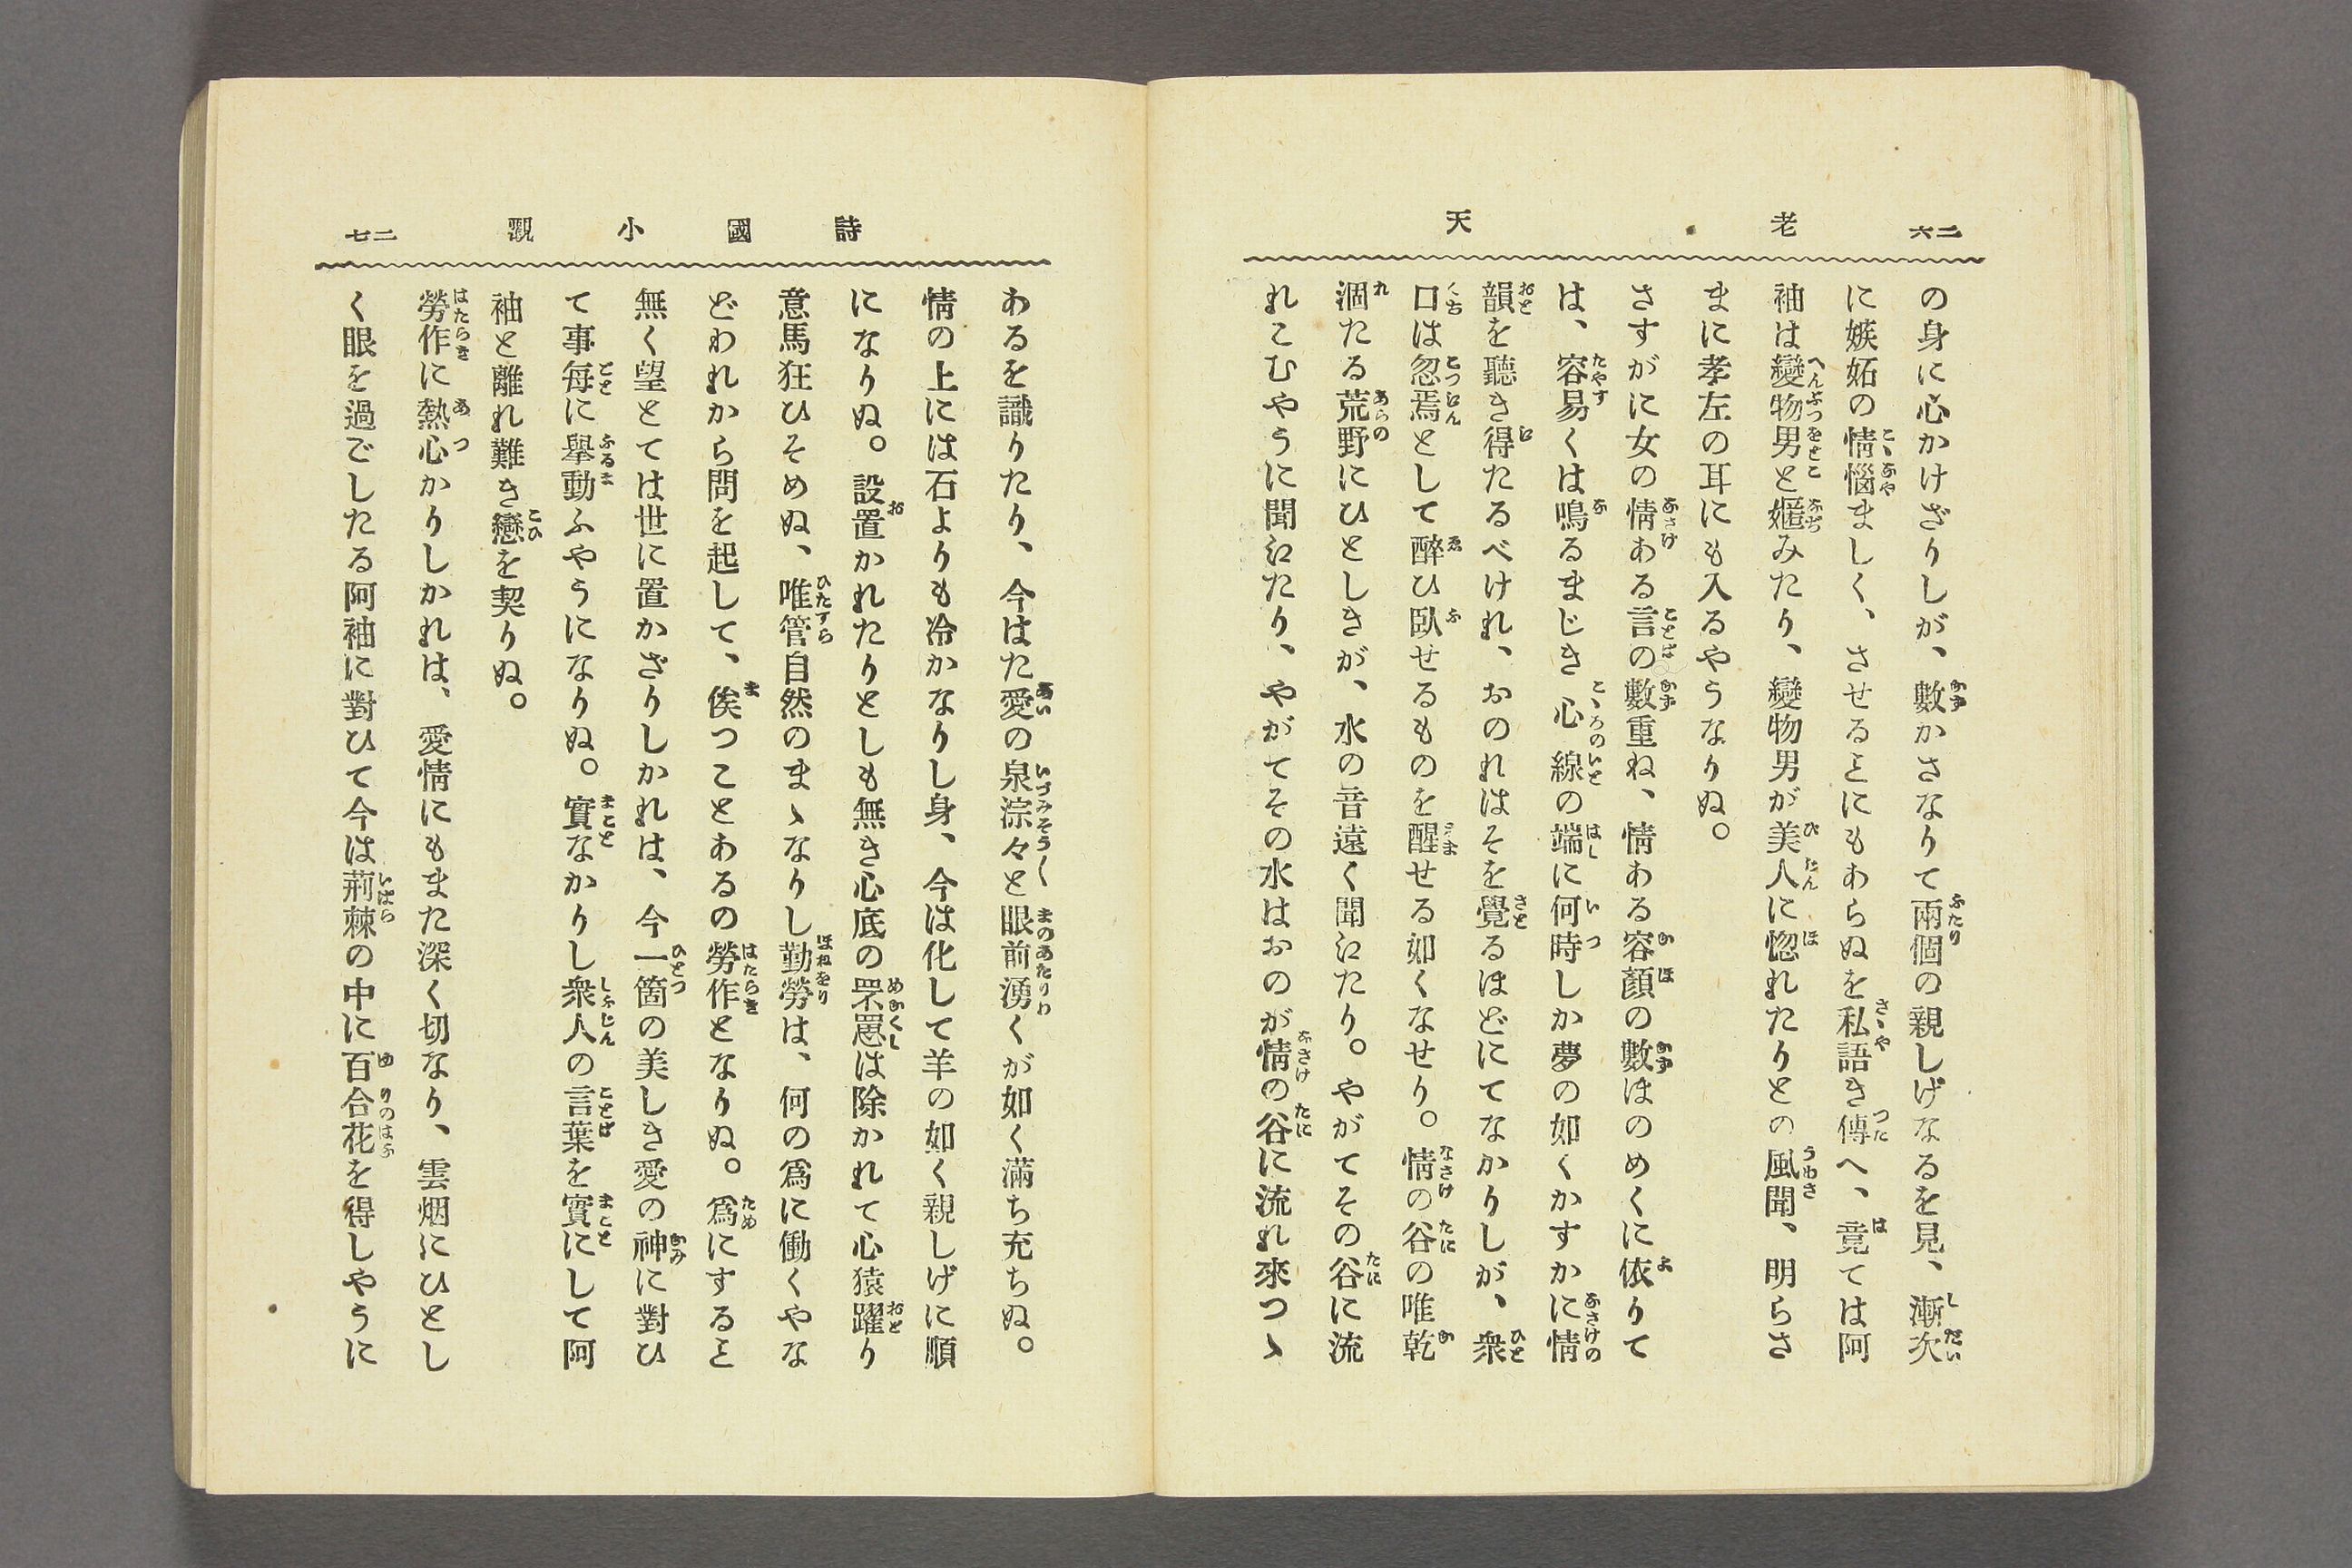 二六
老天
の身に心かけざりしが、數かさなりて兩個の親しげなるを見、漸次
に嫉妬の情惱ましく、させるとにもあらぬを私語き傳へ、竟ては阿
袖は變物男と嫗みたり、變物男が美人に惚れたりとの風聞、明らさ
まに孝左の耳にも入るやうなりぬ。
さすがに女の情ある言の數重ね、情ある容顏の數ほのめくに依りて
は、容易くは鳴るまじき心線の端に何時しか夢の如くかすかに情
韻を聽き得たるべけれ、おのれはそを覺るほどにてなかりしが、衆
口は忽焉として醉ひ臥せるものを醒せる如くなせり。情の谷の唯乾
涸たる荒野にひとしきが、水の音遠く聞江たり。やがてその谷に流
れこむやうに聞江たり、やがてその水はおのが情の谷に流れ來つゝ
詩國小觀
二七
あるを識りたり、今はた愛の泉淙々と眼前湧くが如く滿ち充ちぬ。
情の上には石よりも冷かなりし身、今は化して羊の如く親しげに順
になりぬ。設置かれたりとしも無き心底の罘罳は除かれて心猿躍り
意馬狂ひそめぬ、唯管自然のまゝなりし勤勞は、何の爲に働くやな
どわれから問を起して、俟つことあるの勞作となりぬ。爲にすると
無く望とては世に置かざりしかれは、今一箇の美しき愛の神に對ひ
て事每に擧動ふやうになりぬ。實なかりし衆人の言葉を實にして阿
袖と離れ難き戀を契りぬ。
勞作に熱心かりしかれは、愛情にもまた深く切なり、雲烟にひとし
く眼を過ごしたる阿袖に對ひて今は荊棘の中に百合花を得しやうに